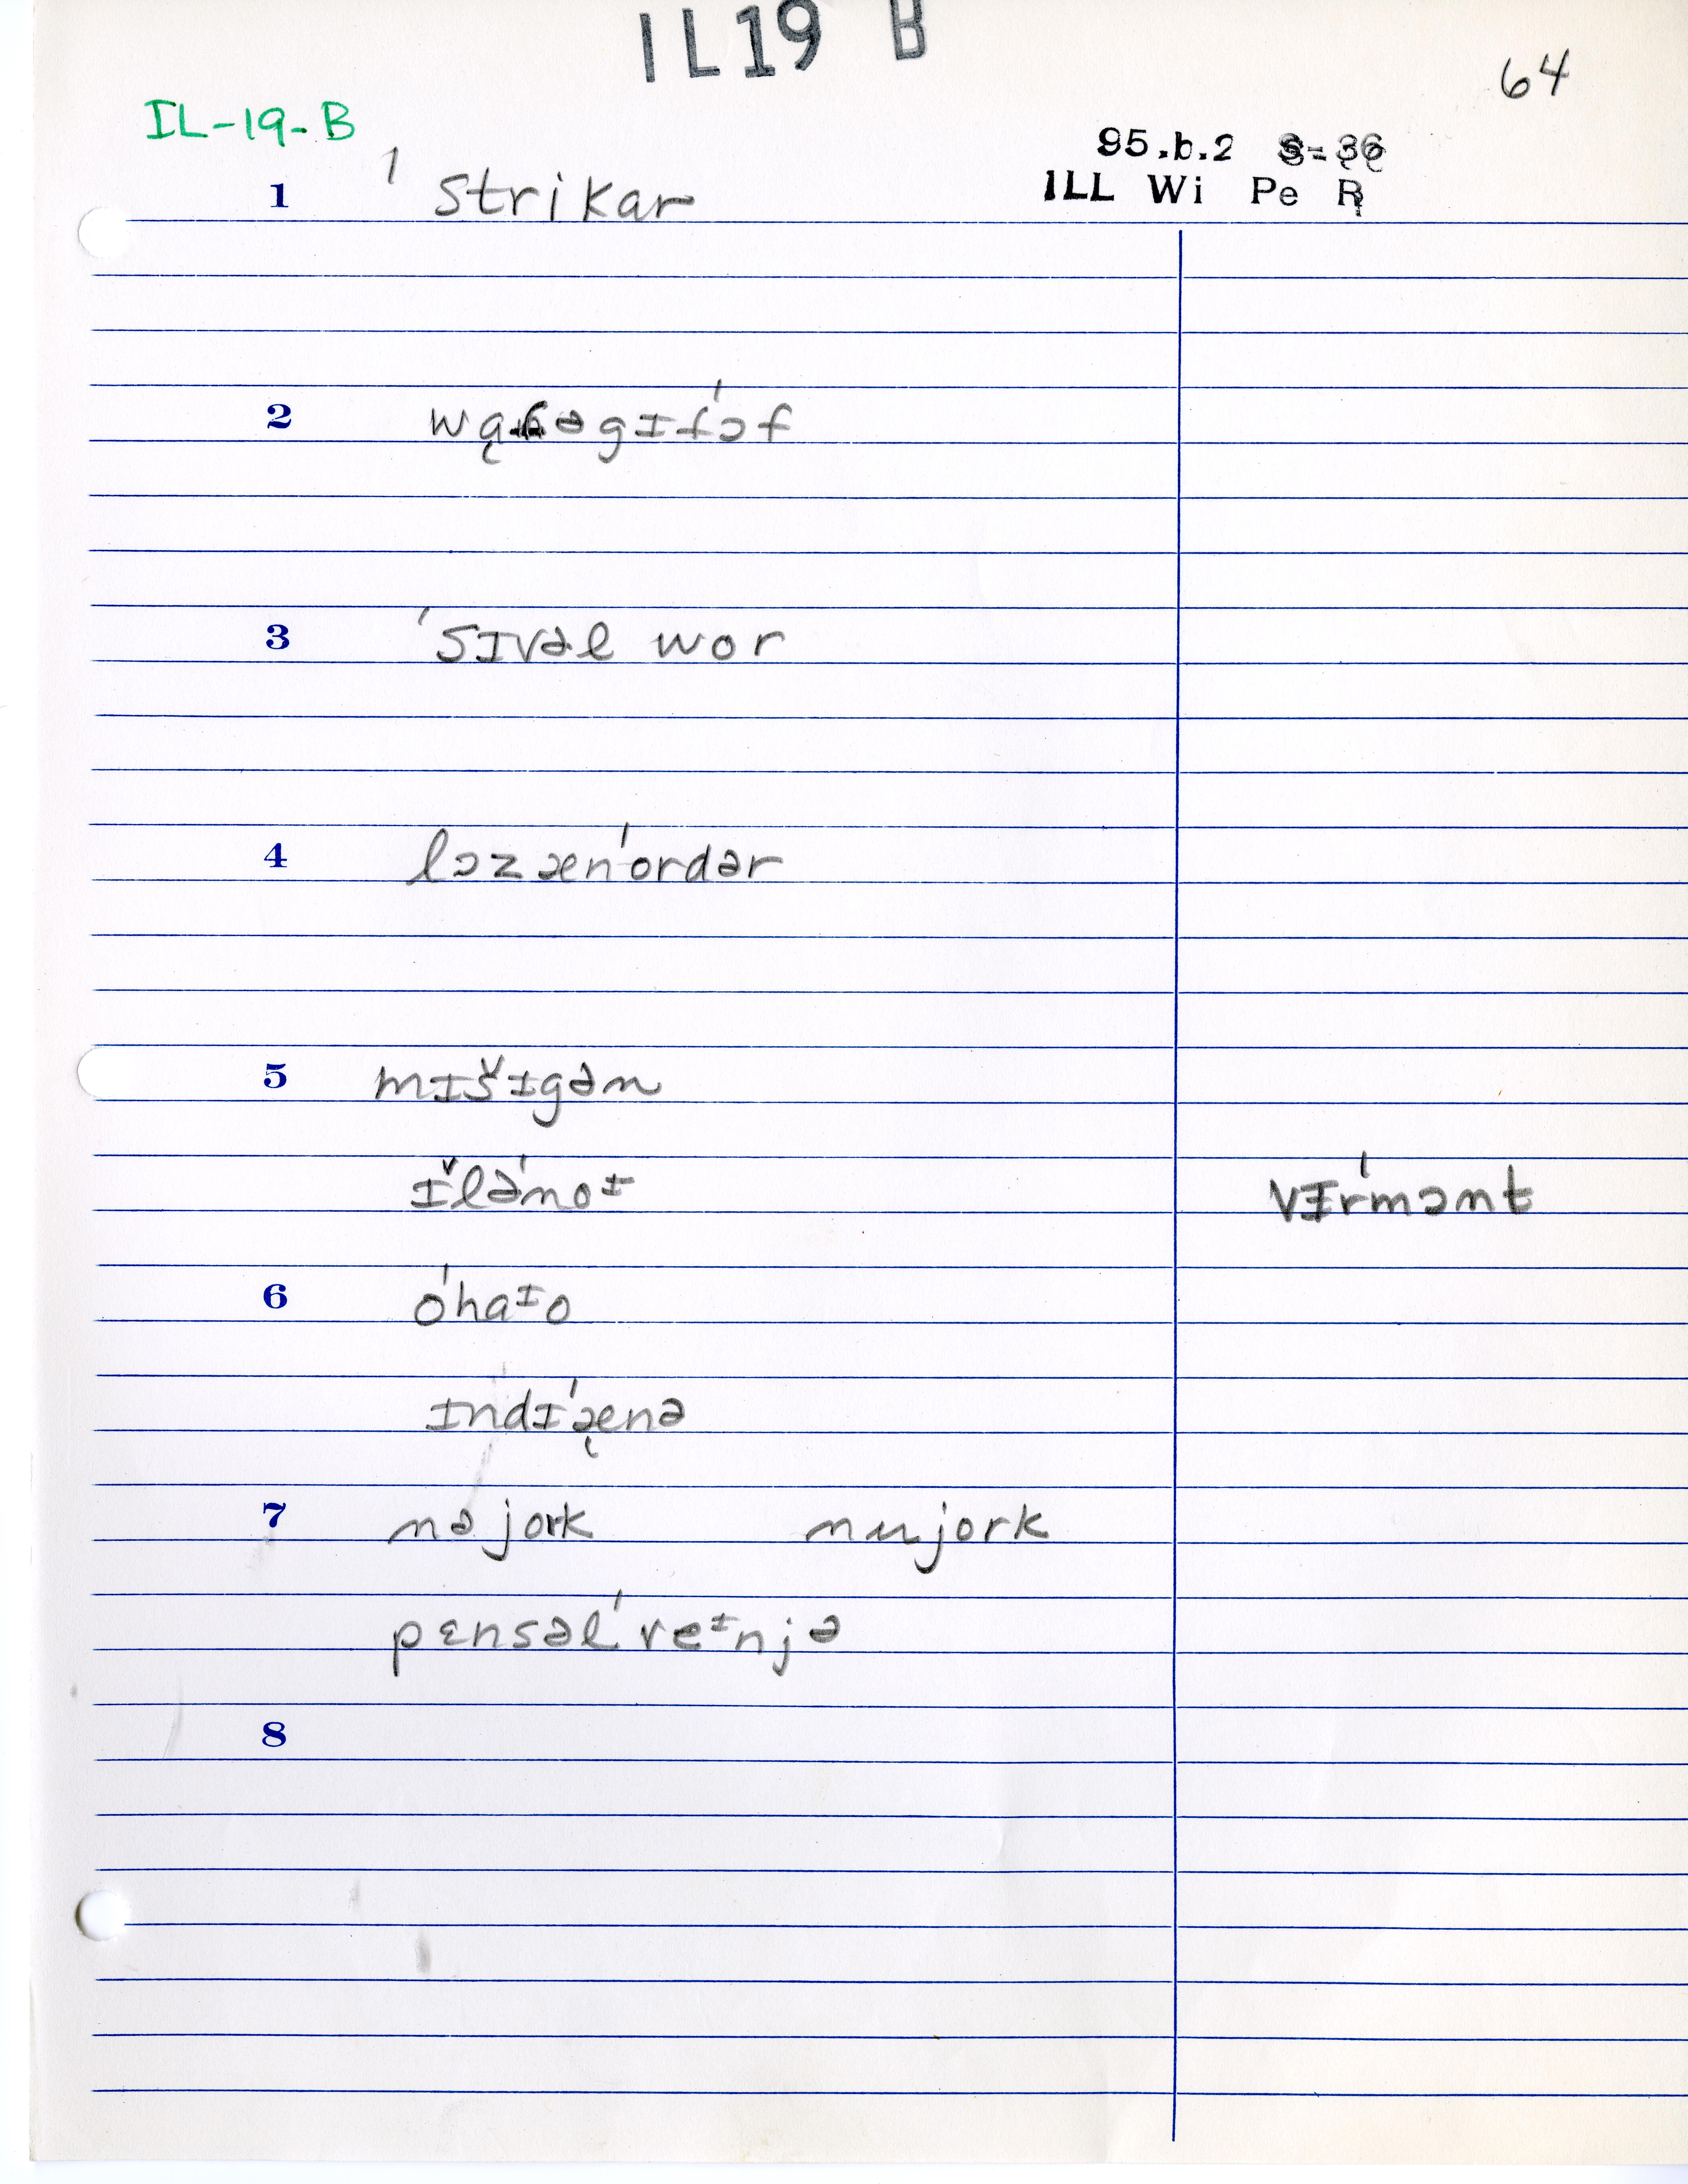 IL19 B
64
IL-19-B
95.b.2 S=36
ILL Wi Pe R
1 ˈstrikar
2
3 ˈsɪvəl wor
4 lɔzænˈordər
5 mɪšɪgən
ɪ̌ləˈnoɪ vɪrˈmɔnt
6 óhaᶦo
ɪndɪˈæ̨nə
7 nəjork nujork
pɛnsəlˈveᶦnjə
8